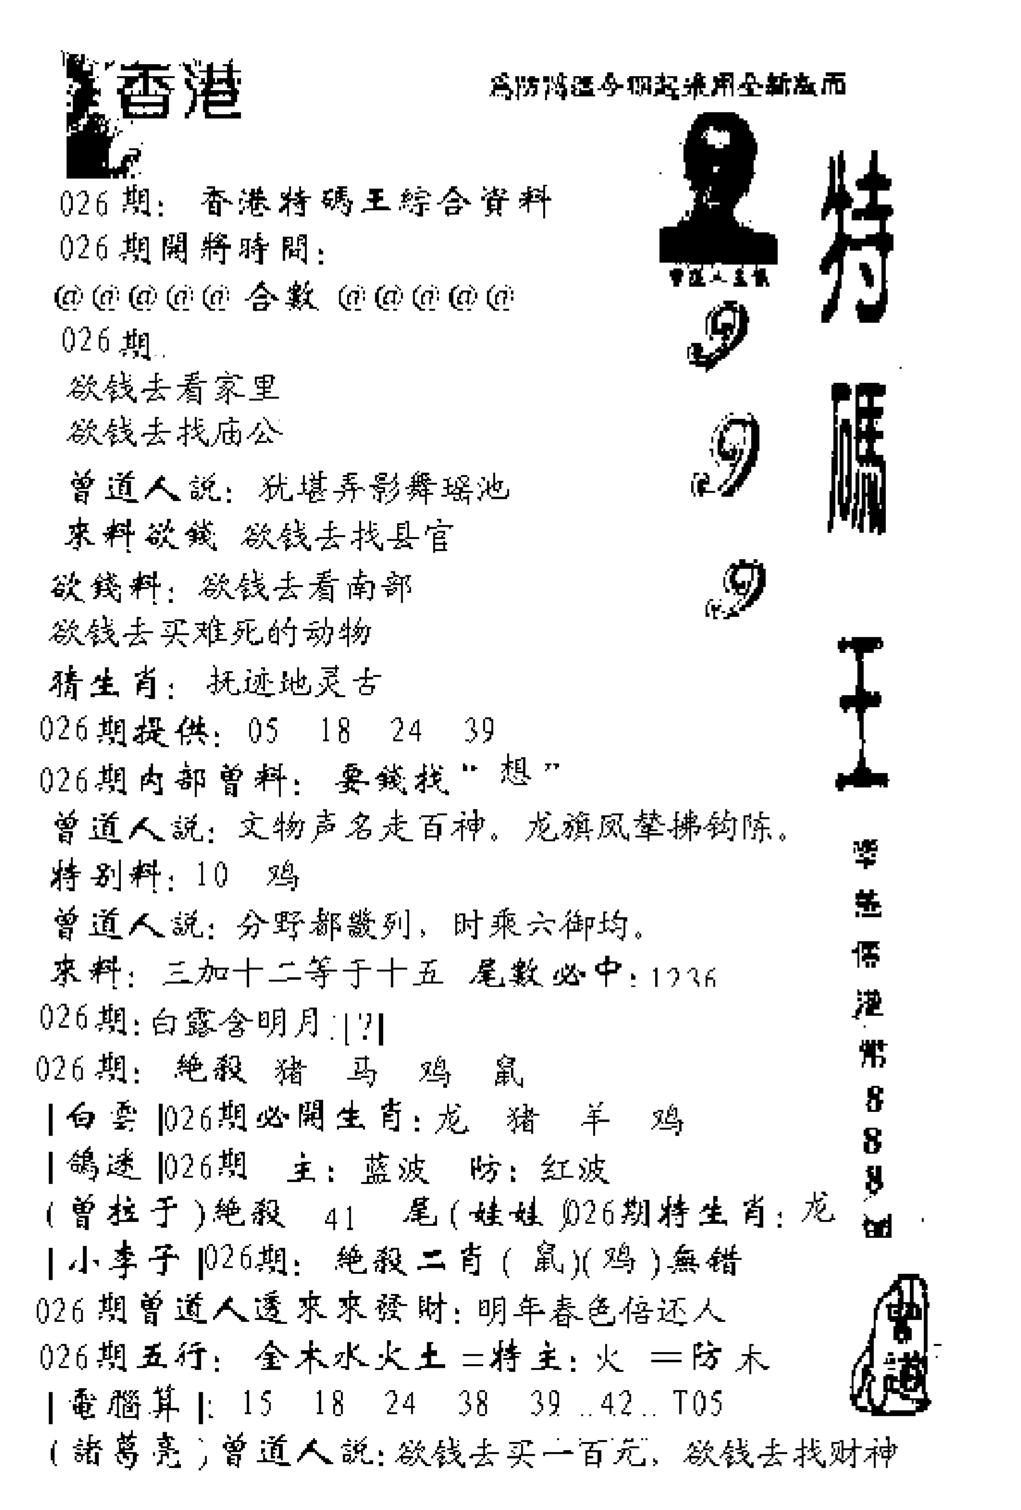 香港
為防鴻濫今期起來用全新版面
026期：香港特碼王綜合資料
026期開將時間：
@@@@@合數@@@@@
026期..
欲钱去看家里
欲钱去找庙公
曾道人説：犹堪弄影舞瑶池
來料欲錢 欲钱去找县官
欲錢料：欲钱去看南部
欲钱去买难死的动物
猜生肖：抚迹地灵古
026期提供：05 18 24 39
026期内部曾料：要錢找“想”
曾道人説：文物声名走百神。龙旗凤辇拂钩陈。
特别料：10 鸡
曾道人説：分野都畿列，时乘六御均。
來料：三加十二等于十五 尾數必中：1236
026期：白露含明月:[?]
026期：絶殺 猪 马 鸡 鼠
|白雲|026期必開生肖：龙 猪 羊 鸡
|鴿迷|026期 主：蓝波 防：红波
(曾拉于)絶殺 41 尾(娃娃)026期特生肖：龙
|小李子|026期：絶殺二肖(鼠)(鸡)無错
026期曾道人透來來發財：明年春色倍还人
026期五行：金木水火土=特主：火 =防木
|電腦算|：15 18 24 38 39..42..T05
(諸葛亮)曾道人説：欲钱去买一百元，欲钱去找财神
特碼王
999
港幣888
曾道